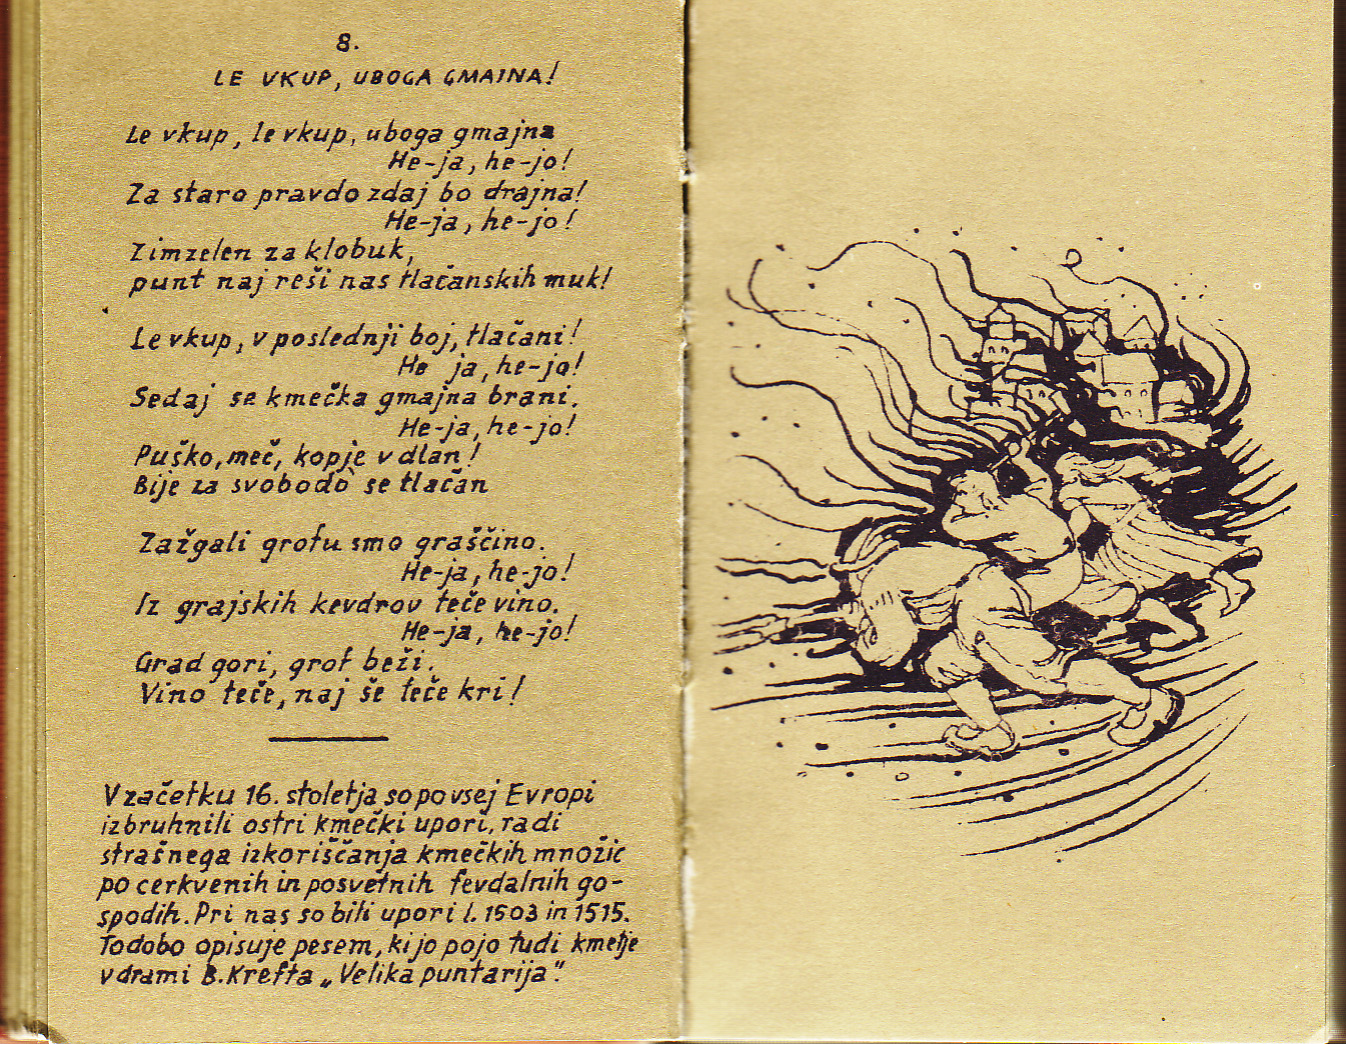 8.
LE VKUP, UBOGA GMAJNA!
Le vkup, le vkup, uboga gmajna
He-ja, he-jo!
Za staro pravdo zdaj bo drajna!
He-ja, he-jo!
Zimzelen za klobuk,
punt naj reši nas tlačanskih muk!
Le vkup, v poslednji boj, tlačani!
He ja, he-jo!
Sedaj se kmečka gmajna brani.
He-ja, he-jo!
Puško, meč, kopje v dlan!
Bije za svobodo se tlačan
Zažgali grofu smo graščino.
He-ja, he-jo!
Iz grajskih kevdrov teče vino.
He-ja, he-jo!
Grad gori, grof beži.
Vino teče, naj še teče kri!
V začetku 16. stoletja so po vsej Evropi
izbruhnili ostri kmečki upori, radi
strašnega izkoriščanja kmečkih množic
po cerkvenih in posvetnih fevdalnih go-
spodih. Pri nas so bili upori l. 1503 in 1515.
To dobo opisuje pesem, ki jo pojo tudi kmetje
v drami B. Krefta „Velika puntarija".